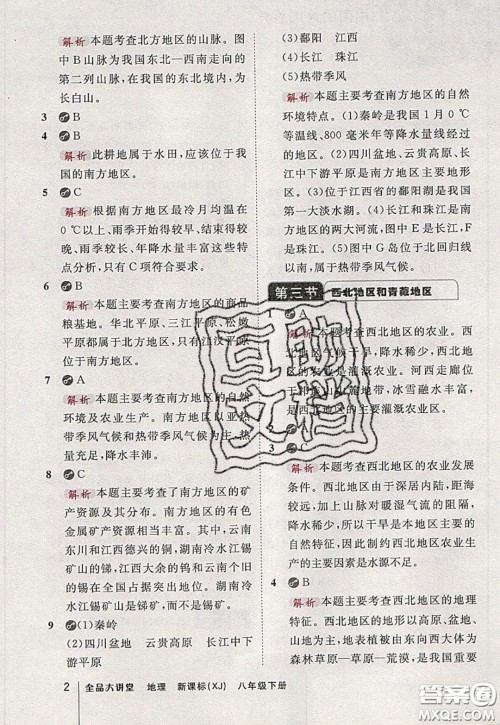 解析 本题考查北方地区的山脉。图
中B山脉是我国东北—西南走向的
第二列山脉,在我国的东北境内,为
长白山。
3 B
4 B
解析 此耕地属于水田,应该位于我
国的南方地区。
5 C
解析 根据南方地区最冷月均温在
0 ℃以上、雨季开始得较早、结束得较
晚、雨季较长、年降水量丰富这些特
点分析,只有C项符合要求。
6 B
解析 本题主要考查南方地区的商品
粮基地。华北平原、三江平原、松嫩
平原都属于北方地区,只有江汉平原
位于南方地区。
7 C
解析 本题主要考查南方地区的自然
环境及农业生产。南方地区以亚热
带季风气候和热带季风气候为主,热
量充足,降水丰富。
8 C
解析 本题主要考查了南方地区的矿
产资源及其分布。南方地区的有色
金属矿产资源丰富,如云南东川、安
徽铜陵和江西德兴的铜,湖南冷水江
的锑,江西大余的钨和云南个旧的锡
在全国占据突出地位。湖南冷水江
锡矿山是锑矿,而不是锡矿。
9 (1)秦岭
(2)四川盆地 云贵高原 长江中下
游平原
(3)鄱阳 江西
(4)长江 珠江
(5)热带季风
解析 本题主要考查南方地区的自然
环境特点。(1)秦岭是我国1月0 ℃
等温线、800毫米年等降水量线经过
的地方。(2)四川盆地、云贵高原、长
江中下游平原是南方地区的主要地
形区。(3)位于江西省的鄱阳湖是我
国第一大淡水湖。(4)长江和珠江是
南方地区的主要河流。(5)图中G岛
位于北回归线以南,属于热带季风气候。
第三节 西北地区和青藏地区
1 A
解析 本题主要考查西北地区的农业。西
北地区气候干旱,降水稀少,
灌溉农业。河西走廊
位于祁连山下,冰雪融水丰富,
是西北地区主要的灌溉农业区。
2
3
解析 本题考查西北地区的农业发展
条件。西北地区由于深居内陆,距海
较远,加上山脉对暖湿气流的阻隔,
降水稀少,所以干旱成为本区的主要
自然特征,因此制约西北地区农业发
展的主要因素是水源。
4 B
解析 本题主要考查西北地区的地理
特征。西北地区的降水由东向西逐
渐减少,地表植被由东向西大致由
森林草原—草原—荒漠,是我国主要
2 全品大讲堂 地理 新课标(XJ) 八年级下册
答案圈